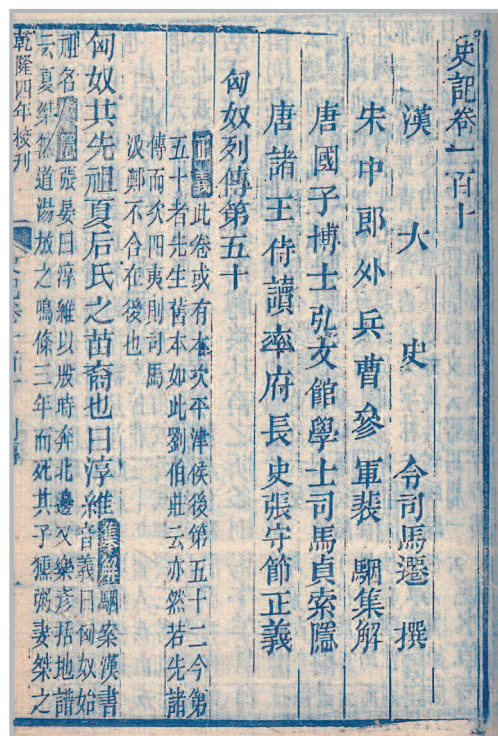 史記卷一百十
漢太史令司馬遷撰
宋中郎外兵曹參軍裴駰集解
唐國子博士弘文館學士司馬貞索隱
唐諸王侍讀率府長史張守節正義
匈奴列傳第五十
正義此卷或有本次平津侯後第五十二今第
五十者先生舊本如此劉伯莊云亦然若先諸
傳而次四夷則司馬
汲鄭不合在後也
匈奴其先祖夏后氏之苗裔也曰淳維集解駰案漢書
音義曰匈奴始
祖名索隱張晏曰淳維以殷時奔北邊又樂彥括地譜
云夏桀無道湯放之鳴條三年而死其子獯粥妻桀之
乾隆四年校刊